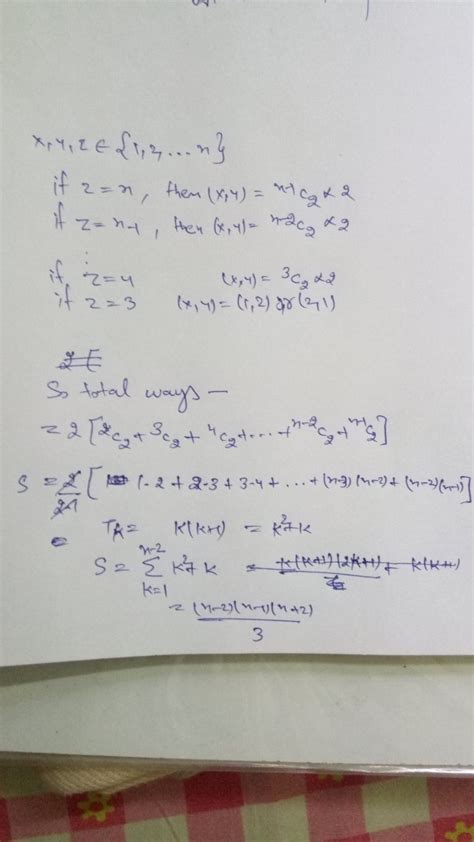 x, y, z ∈ {1, 2, ... n}
if z = n, then (x, y) = ⁿ⁻¹C₂ × 2
if z = n-1, then (x, y) = ⁿ⁻²C₂ × 2
⋮
if z = 4 (x, y) = ³C₂ × 2
if z = 3 (x, y) = (1, 2) or (2, 1)
So total ways —
= 2 [²C₂ + ³C₂ + ⁴C₂ + ... + ⁿ⁻²C₂ + ⁿ⁻¹C₂]
S = 2/2! [1-2 + 2-3 + 3-4 + ... + (n-3)(n-2) + (n-2)(n-1)]
Tk = k(k+1) = k² + k
S = Σ_{k=1}^{n-2} k² + k = k(k+1)(2k+1)/6 + k(k+1)
= (n-2)(n-1)(n+2)/3